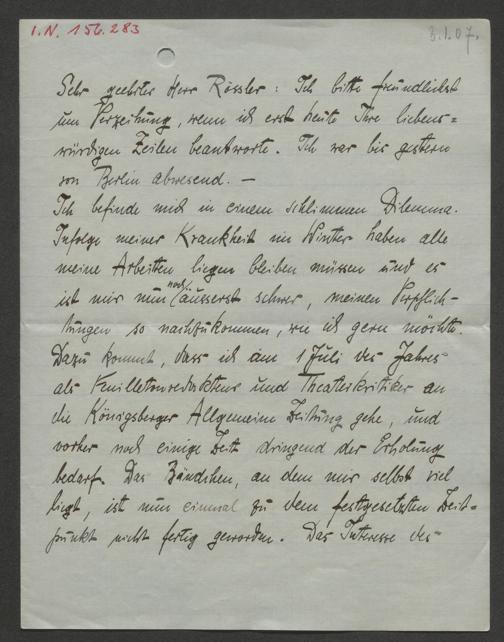 I.N. 156.283
3.I.07.
Sehr geehrter Herr Rössler: Ich bitte freundlichst
um Verzeihung, wenn ich erst heute Ihre liebens=
würdigen Zeilen beantworte. Ich war bis gestern
von Berlin abwesend. —
Ich befinde mich in einem schlimmen Dilemma.
Infolge meiner Krankheit im Winter haben alle
meine Arbeiten liegen bleiben müssen und es
ist mir nun noch äusserst schwer, meinen Verpflich-
tungen so nachzukommen, wie ich gern möchte.
Dazu kommt, dass ich am 1 Juli des Jahres
als Feuilletonredakteur und Theaterkritiker an
die Königsberger Allgemeine Zeitung gehe, und
vorher noch einige Zeit dringend der Erholung
bedarf. Das Bändchen, an dem mir selbst viel
liegt, ist nun einmal zu dem festgesetzten Zeit=
punkt nicht fertig geworden. Das Interesse des